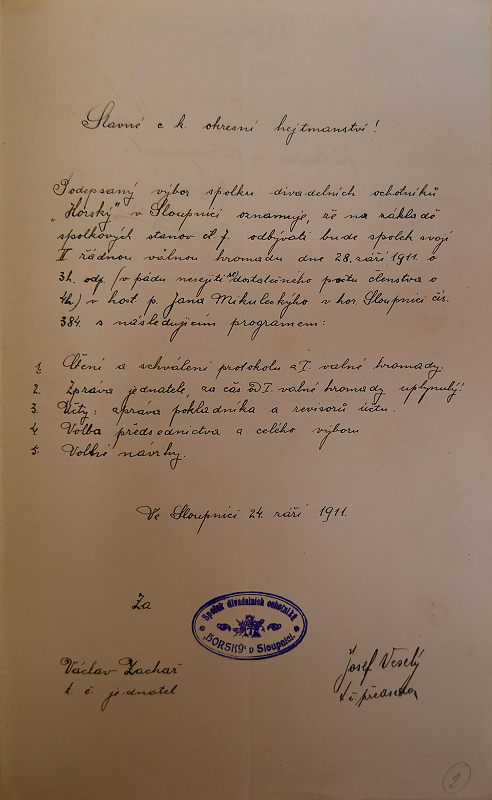 Slavné c k. okresní hejtmanství!
Podepsaný výbor spolku divadelních ochotníků
„Horský" v Sloupnici oznamuje, že na základě
spolkových stanov čl. 7. odbývati bude spolek svoji
II řádnou valnou hromadu dne 28. září 1911 o
3h. odp. (v pádu nesejití se dostatečného počtu členstva o
4h.) v host. p. Jana Mikuleckýho v hor. Sloupnici čís.
384. s následujícím programem:
1. Čtení a schválení protokolu z I. valné hromady.
2. Zpráva jednatele, za čas od I. valné hromady uplynulý.
3. Účty: zpráva pokladníka a revisorů účtu.
4. Volba předsednictva a celého výboru
5. Volné návrhy.
Ve Sloupnici 24. září 1911.
Za
Spolek divadelních ochotníků
„HORSKÝ" v Sloupnici.
Václav Zachař
t. č. jednatel
Josef Veselý
t. č. předseda
2